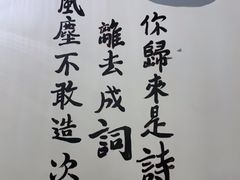 你歸來是詩
離去成詞
風塵不敢造次